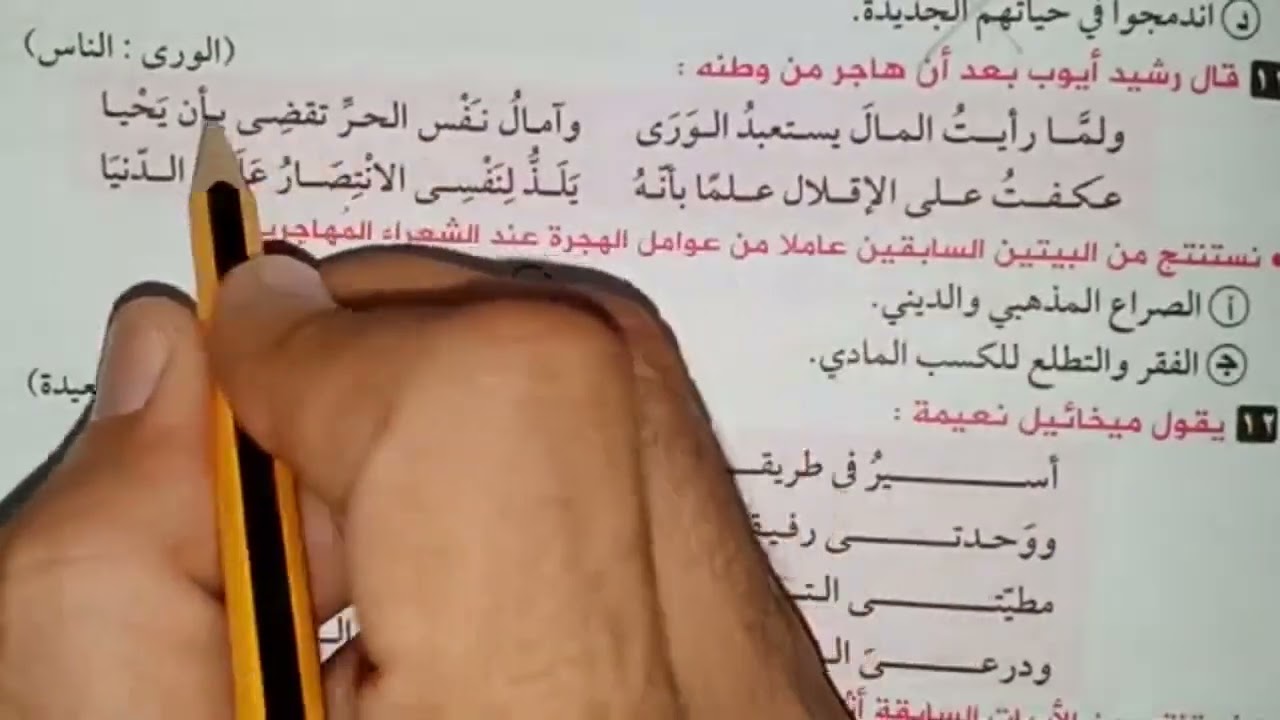 د اندمجوا في حياتهم الجديدة.
١١ قال رشيد أيوب بعد أن هاجر من وطنه : (الورى : الناس)
ولمَّا رأيتُ المالَ يستعبدُ الوَرَى وآمالُ نَفْس الحرِّ تقضِى بأن يَحْيا
عكفتُ على الإقلال علمًا بأنّهُ يَلَذُّ لِنَفْسِى الانْتِصَارُ الدّنيَا
• نستنتج من البيتين السابقين عاملا من عوامل الهجرة عند الشعراء المُهاجرين
أ الصراع المذهبي والديني.
ج الفقر والتطلع للكسب المادي.
١٢ يقول ميخائيل نعيمة :
أسيرُ فى
ووَحدتى
مطيّتى
ودرعىَ
الأبيات السابقة